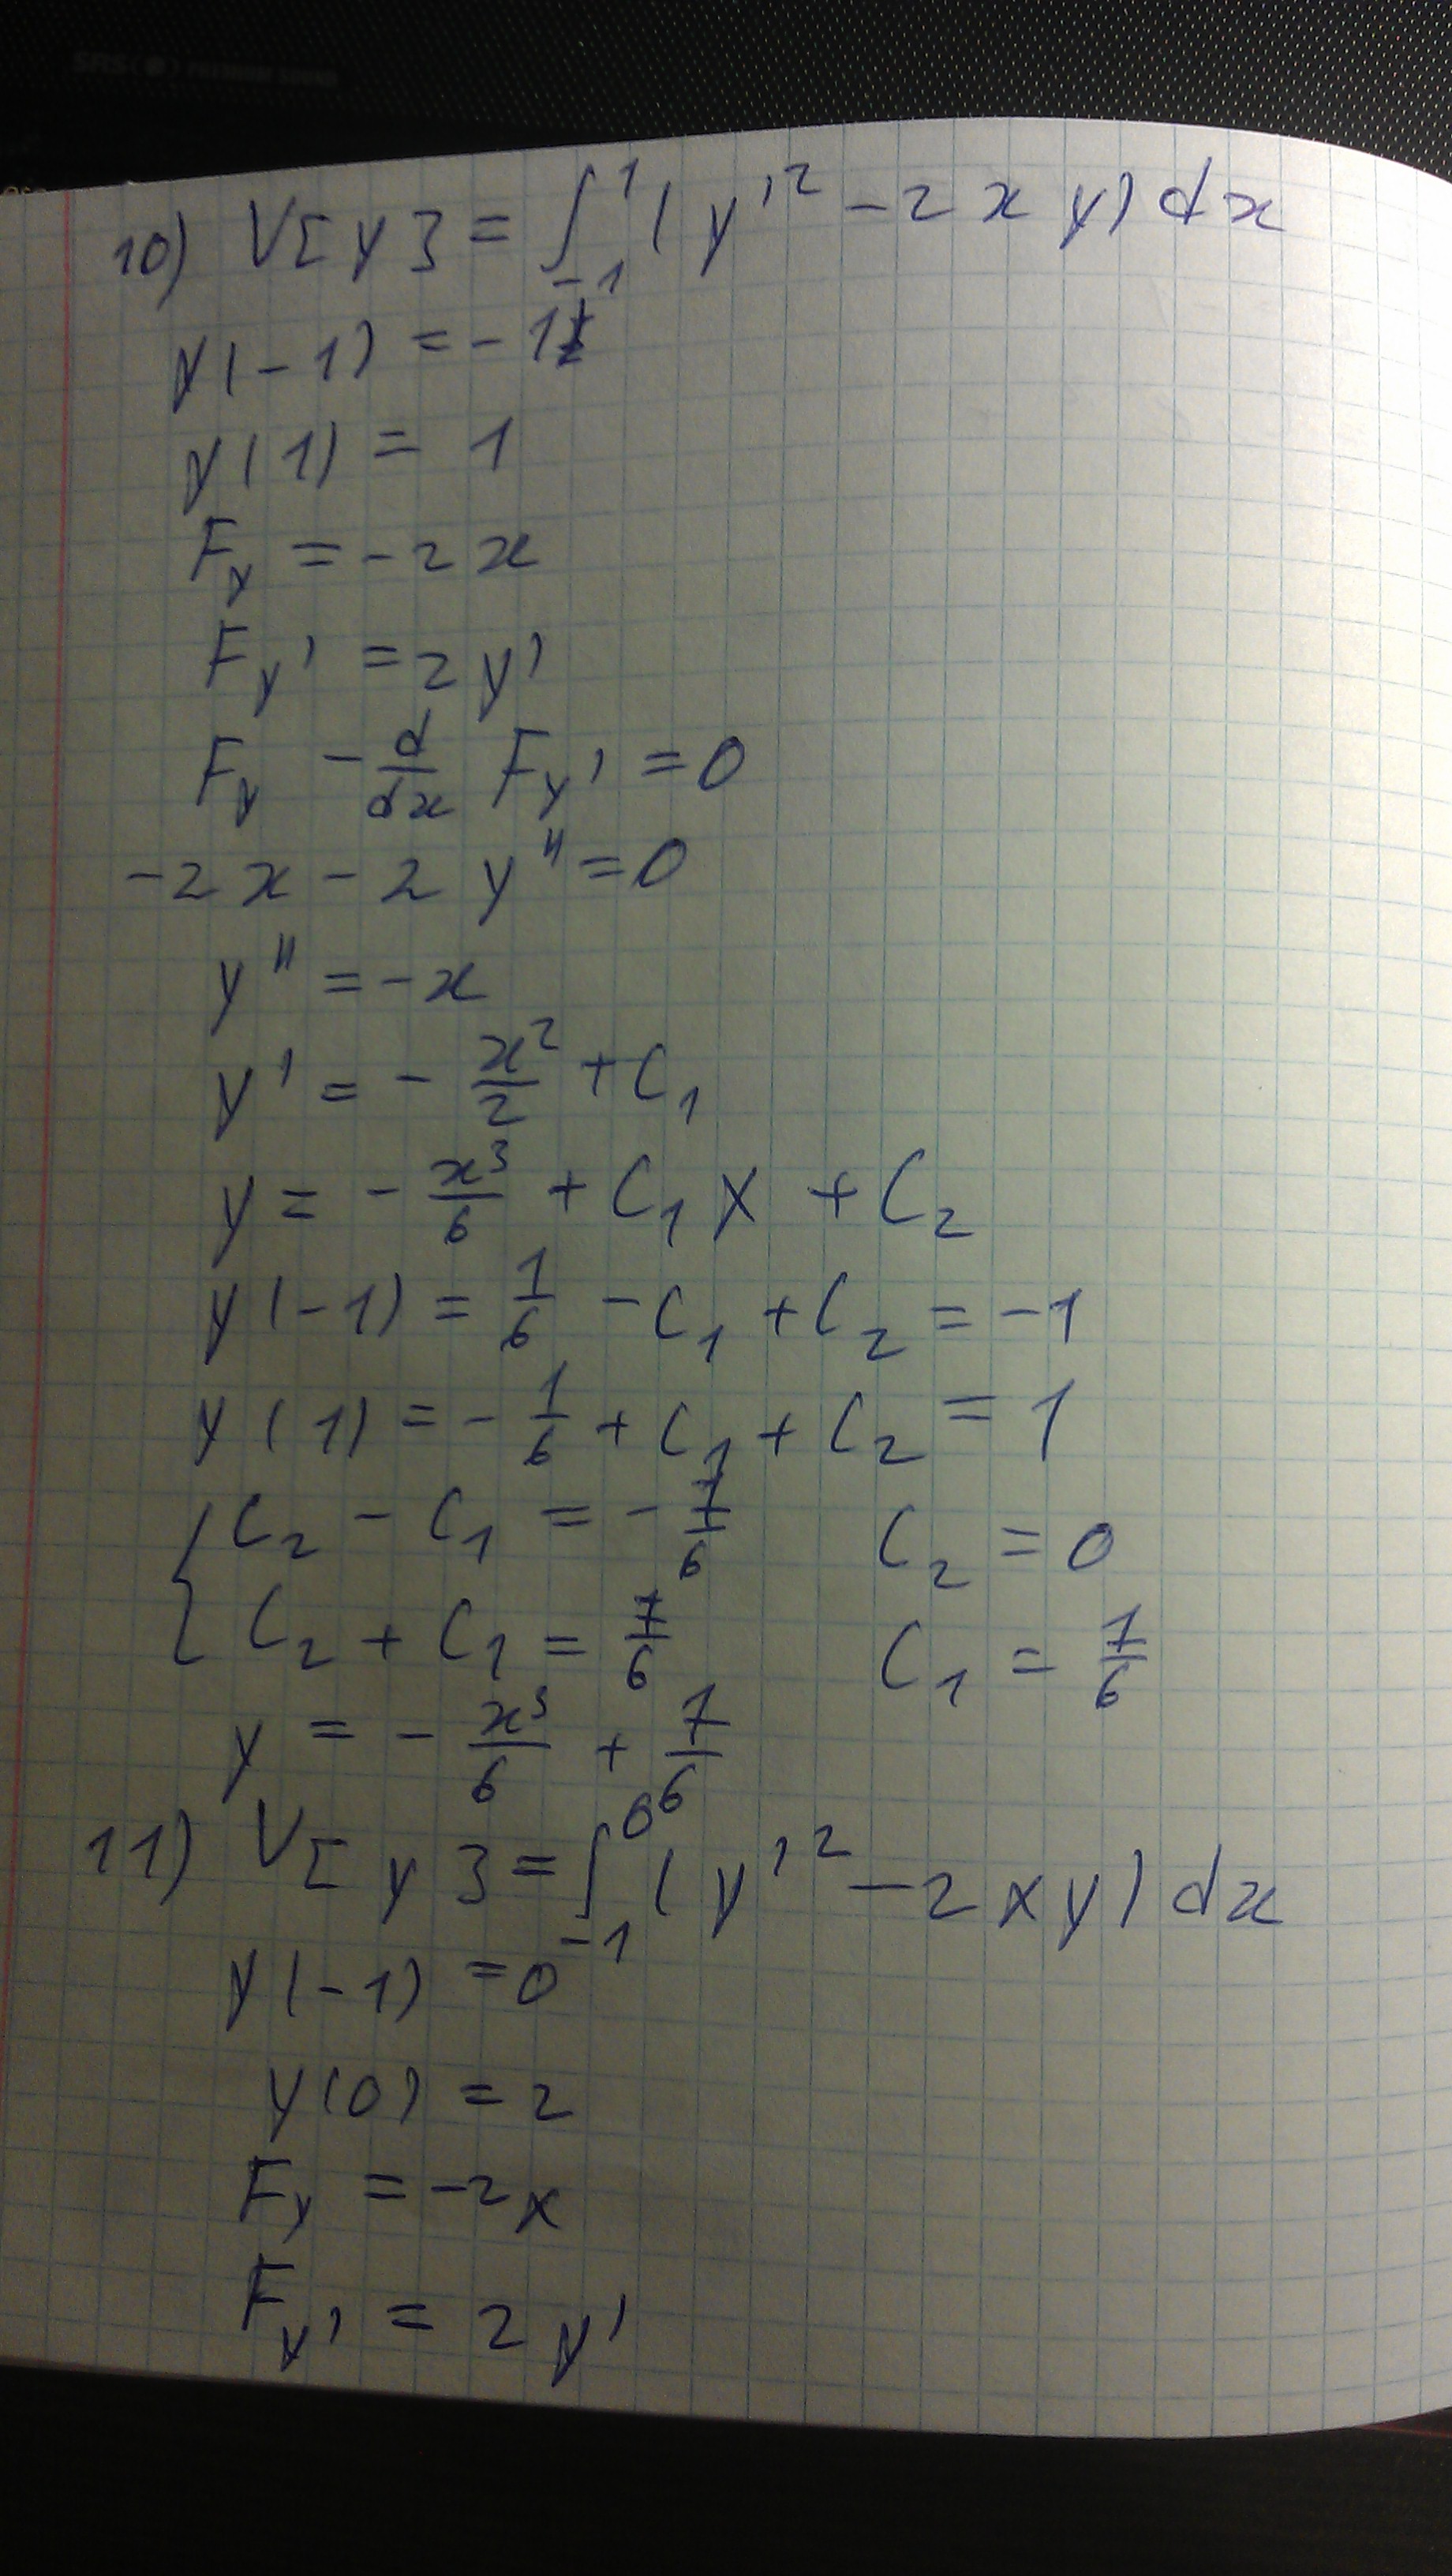 SRS(●)
10) V[y] = ∫₋₁¹ (y'² - 2xy) dx
y(-1) = -1
y(1) = 1
F_y = -2x
F_y' = 2y'
F_y - d/dx F_y' = 0
-2x - 2y'' = 0
y'' = -x
y' = - x²/2 + C₁
y = - x³/6 + C₁x + C₂
y(-1) = 1/6 - C₁ + C₂ = -1
y(1) = - 1/6 + C₁ + C₂ = 1
{ C₂ - C₁ = - 7/6    C₂ = 0
C₂ + C₁ = 7/6    C₁ = 7/6
y = - x³/6 + 7/6
11) V[y] = ∫₋₁⁰ (y'² - 2xy) dx
y(-1) = 0
y(0) = 2
F_y = -2x
F_y' = 2y'